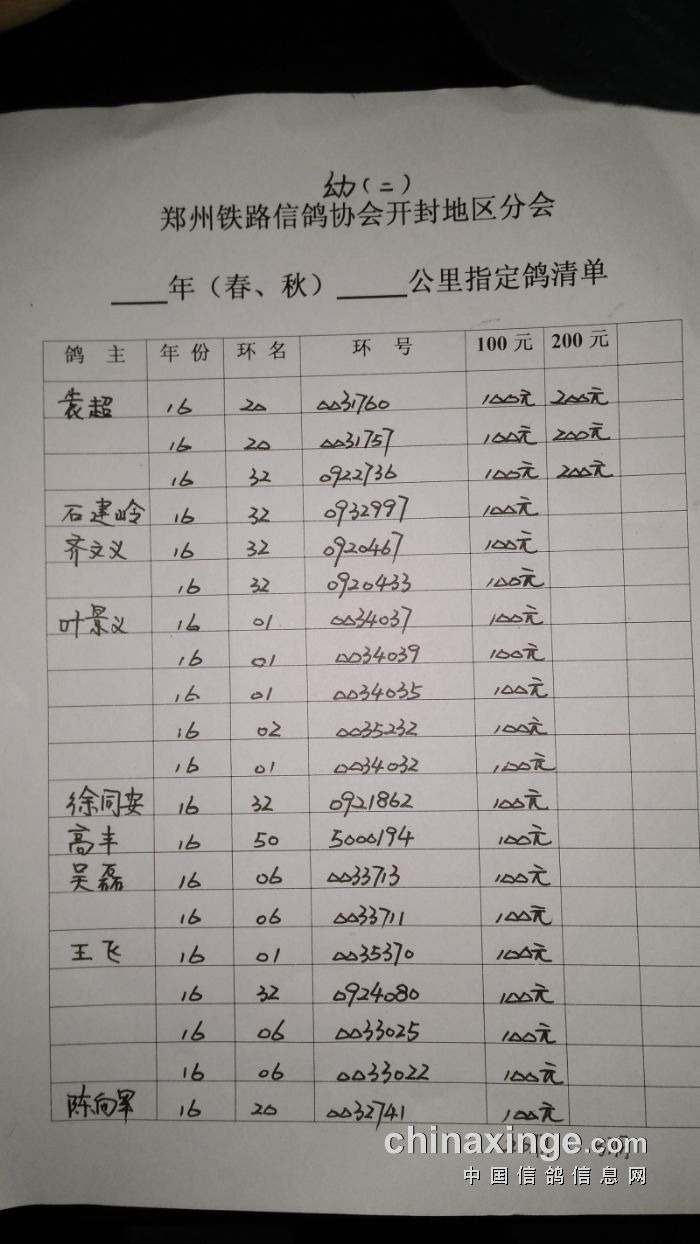 幼(二)
郑州铁路信鸽协会开封地区分会
____年（春、秋）_____公里指定鸽清单
鸽 主 年 份 环 名 环 号 100 元 200 元
袁超 16 20 0031760 100元 200元
16 20 0031757 100元 200元
16 32 0922736 100元 200元
石建岭 16 32 0932997 100元
齐文义 16 32 0920467 100元
16 32 0920433 100元
叶景义 16 01 0034037 100元
16 01 0034039 100元
16 01 0034035 100元
16 02 0035232 100元
16 01 0034032 100元
徐同安 16 32 0921862 100元
高丰 16 50 5000194 100元
吴磊 16 06 0033713 100元
16 06 0033711 100元
王飞 16 01 0035370 100元
16 32 0924080 100元
16 06 0033025 100元
16 06 0033022 100元
陈向军 16 20 0032741 100元
chinaxinge.com
中国信鸽信息网